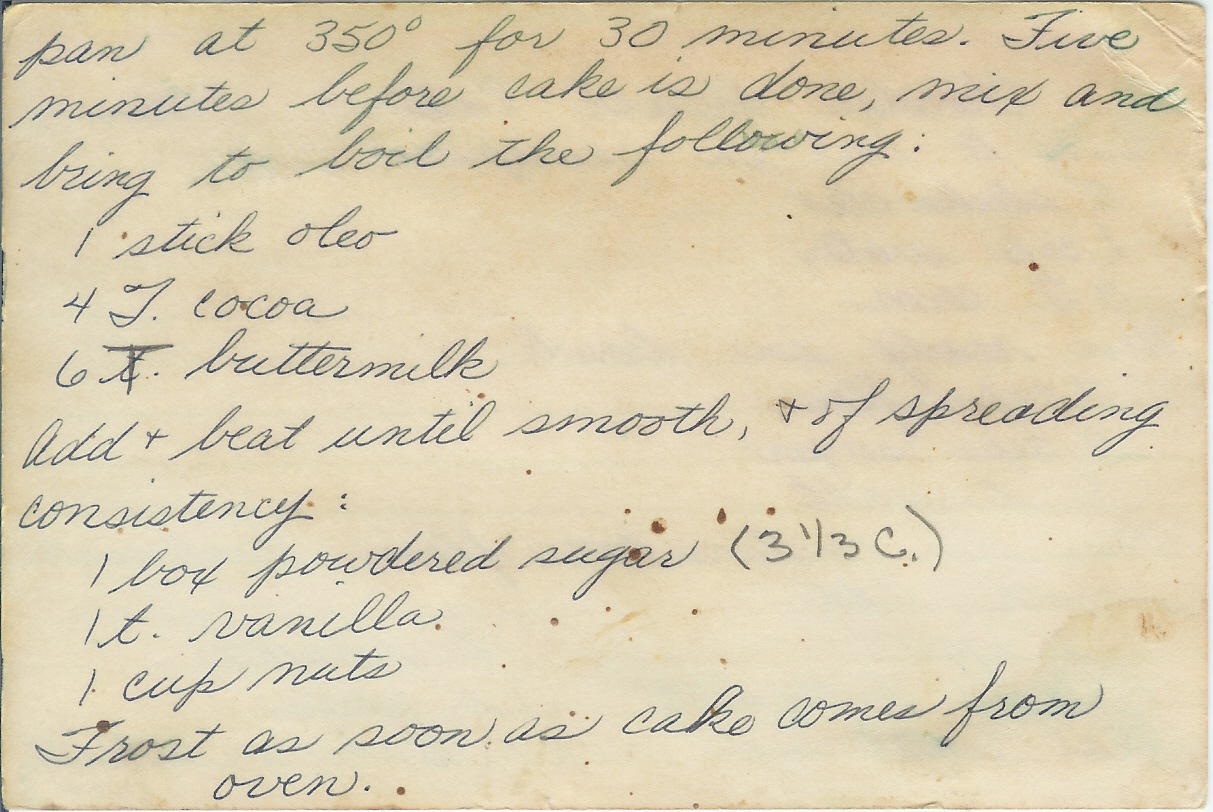 pan at 350° for 30 minutes. Five
minutes before cake is done, mix and
bring to boil the following:
1 stick oleo
4 T. cocoa
6 T. buttermilk
Add + beat until smooth, + of spreading
consistency:
1 box powdered sugar (3 1/3 C.)
1 t. vanilla
1 cup nuts
Frost as soon as cake comes from
oven.